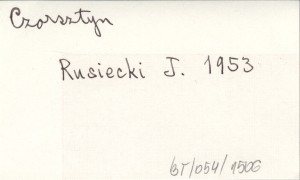 Czorsztyn
Rusiecki J. 1953
BT/054/1506